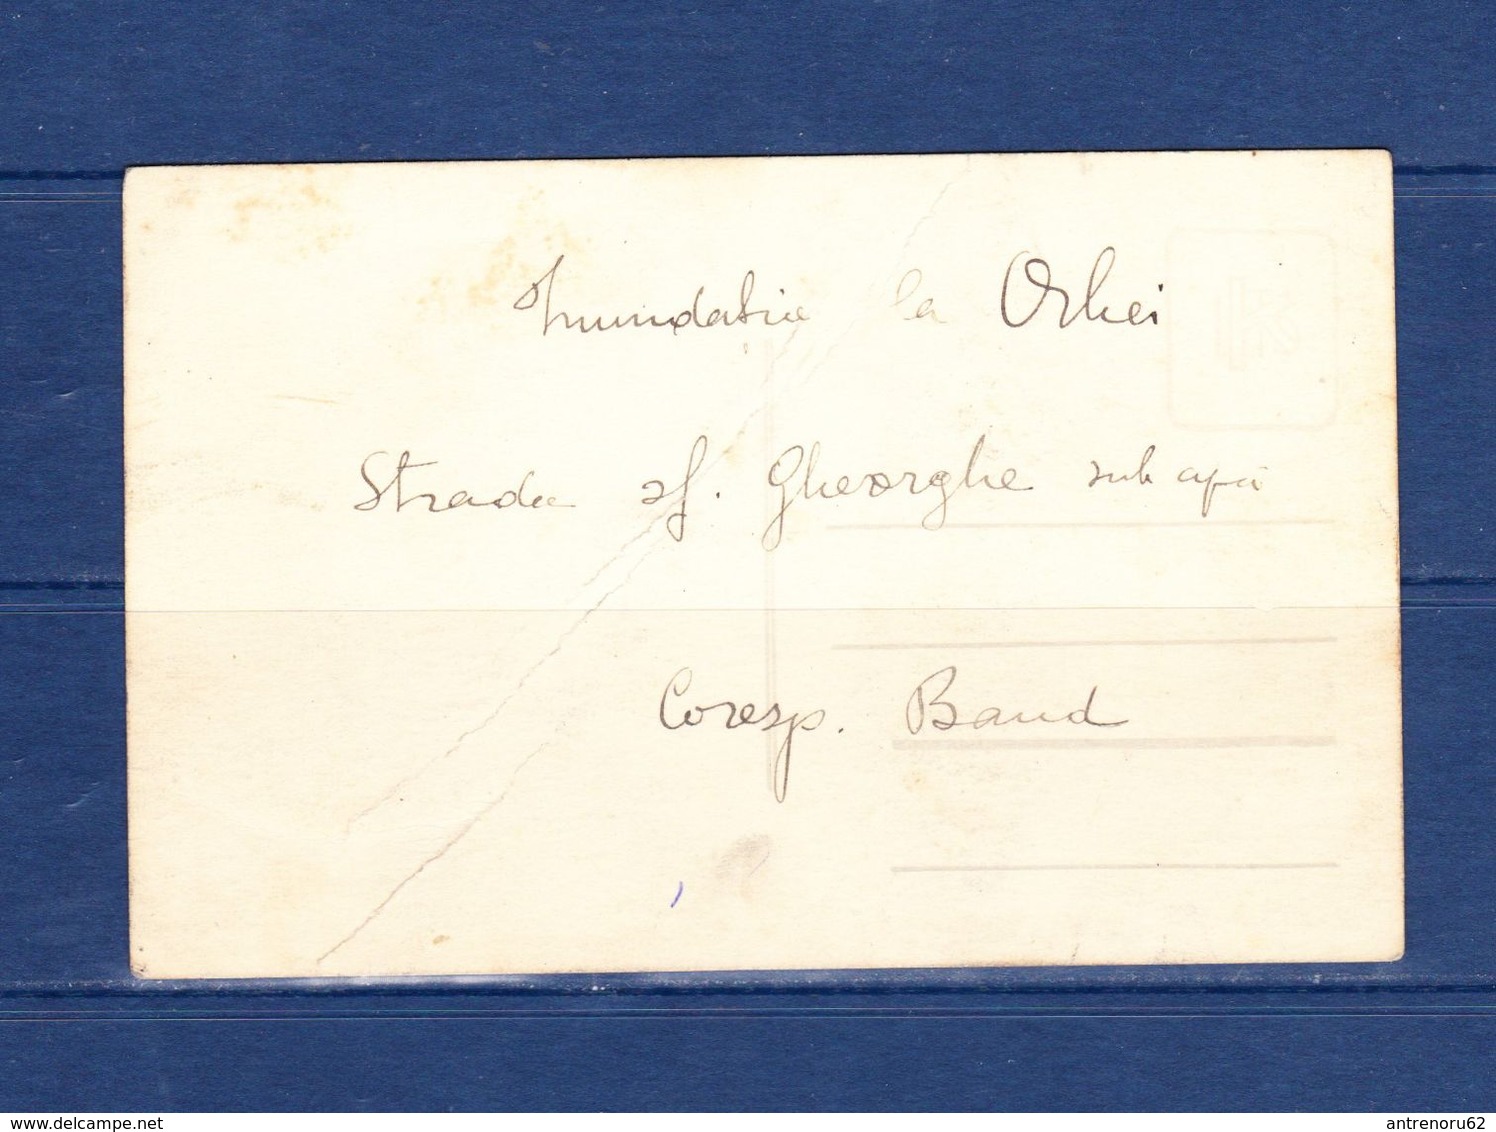 Inundatie la Orhei
Strada sf. Gheorghe sub apă
Coresp. Baud
www.delcampe.net
antrenoru62